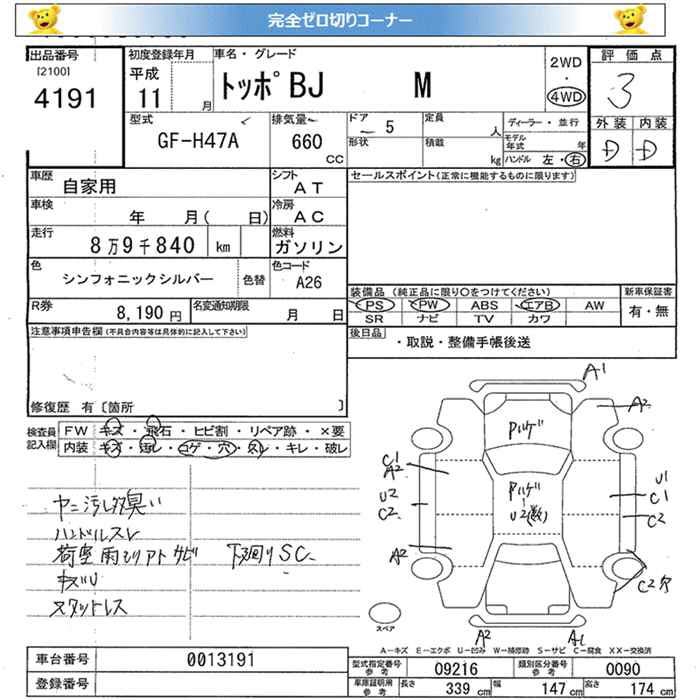 完全ゼロ切りコーナー
出品番号 初度登録年月 車名・グレード 2WD ・ 4WD 評価点
[2100] 4191 平成 11 月 トッポBJ M 3
型式 GF-H47A 排気量 660 CC ドア 5 定員 人 ディーラー・並行 外装 内装
形状 積載 kg モデル年式 年 ハンドル 左・右 D D
車歴 自家用 シフト AT セールスポイント(正常に機能するものに限ります)
車検 年 月( 日) 冷房 AC
走行 8万9千840 km 燃料 ガソリン
色 シンフォニックシルバー 色替 色コード A26
装備品 (純正品に限り〇をつけてください) 新車保証書
R券 8,190 円 名変通知期限 月 日 PS PW ABS エアB AW 有・無
SR ナビ TV カワ
注意事項申告欄(不具合内容等は具体的に記入して下さい) 後日品 ・取説・整備手帳後送
修復歴 有〔箇所 〕
検査員記入欄 FW キズ・飛石・ヒビ割・リペア跡・×要
内装 キズ・汚レ・コゲ・穴・スレ・キレ・破レ
ヤニ汚レ多臭い
ハンドルスレ
荷室雨モリアトサビ 下廻りSC
キズU
スタットレス
A1
A2
ハゲ
C1
A2
U2
C2
ハゲ
U2(数)
U1
C1
C2
A2
C2穴
スペア
A2 A1
A-キズ E-エクボ U-凹み W-補修跡 S-サビ C-腐食 XX-交換済
車台番号 0013191 型式指定番号 参考 09216 類別区分番号 参考 0090
登録番号 車庫証明用 参考 長さ 339 cm 幅 147 cm 高さ 174 cm